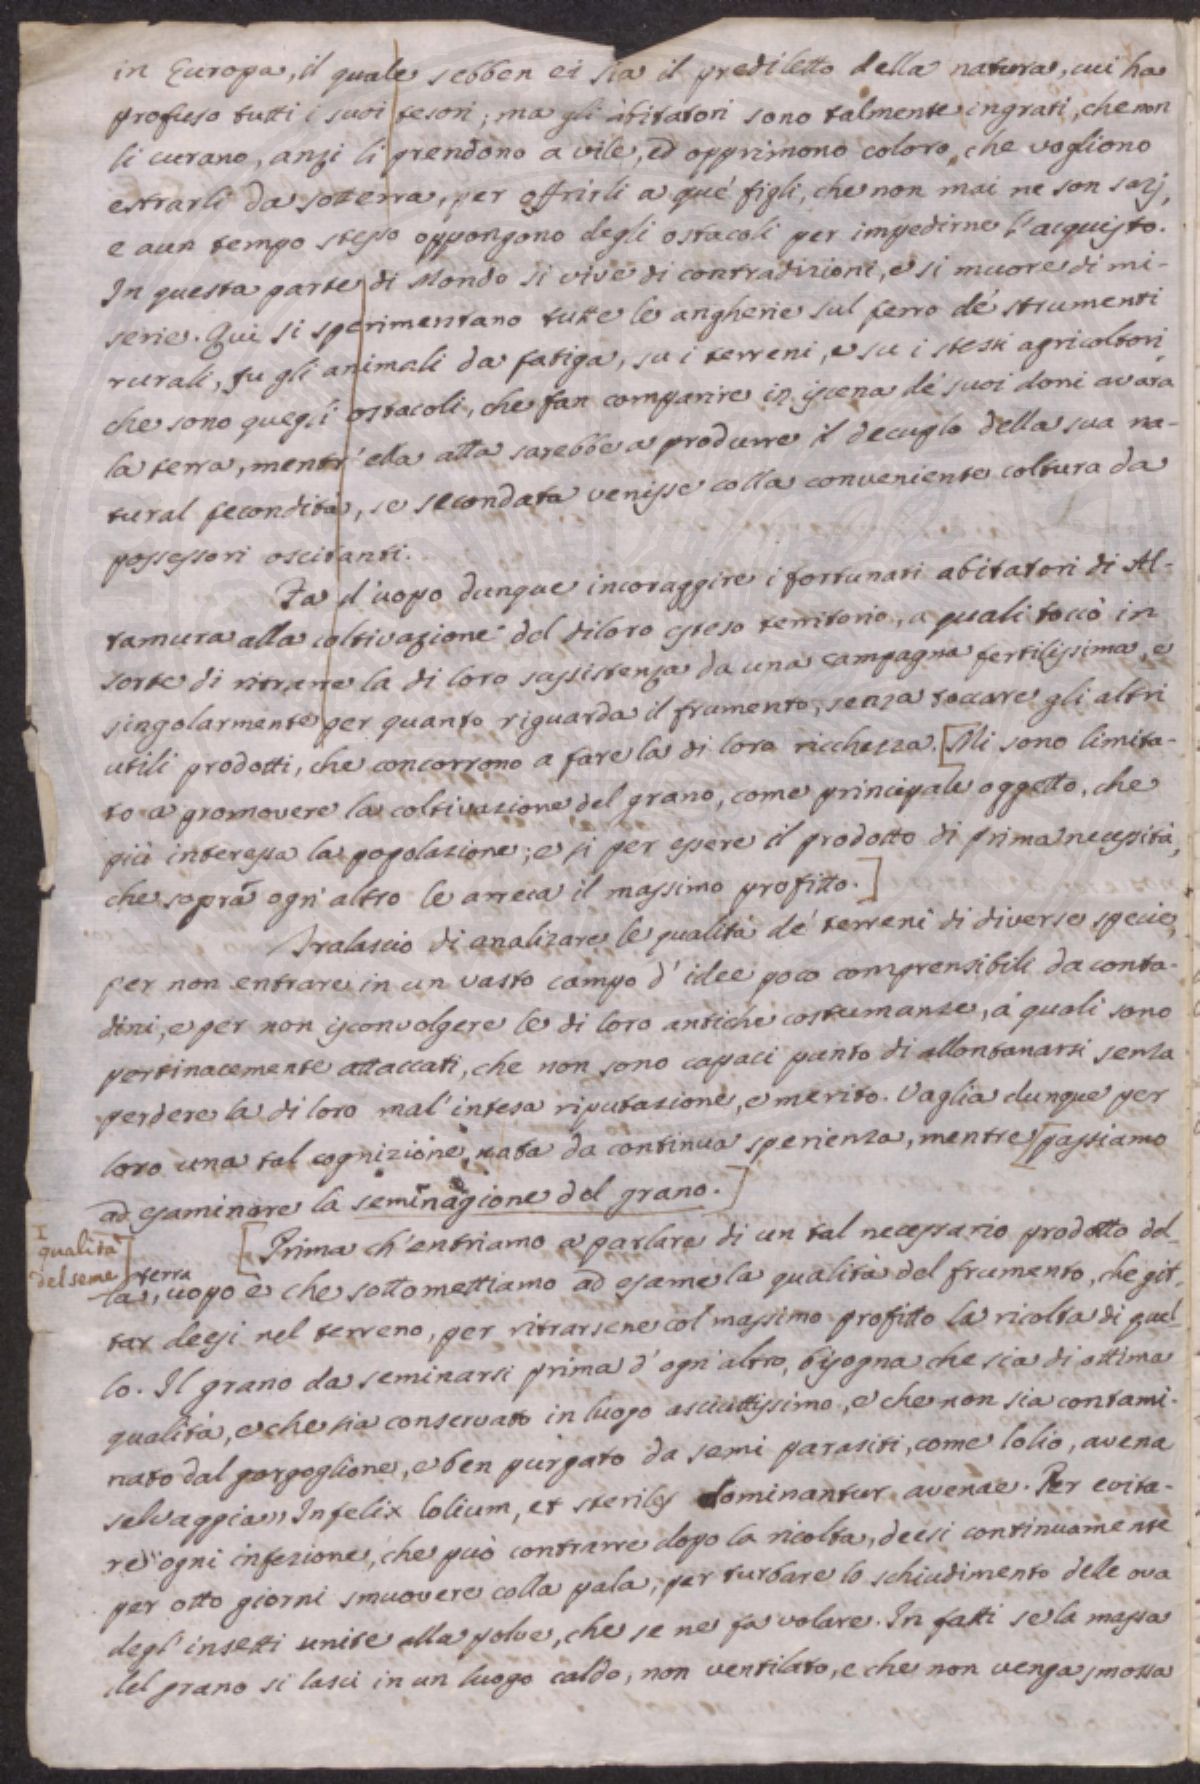 in Europa, il quale sebben ei sia il prediletto della natura, cui ha
profuso tutti i suoi tesori; ma gli abitatori sono talmente ingrati, che non
li curano, anzi li prendono a vile, ed opprimono coloro, che vogliono
estrarli da sotterra, per offrirli a que' figli, che non mai ne son sazj,
e a un tempo stesso oppongono degli ostacoli per impedirne l'acquisto.
In questa parte di Mondo si vive di contradizioni, e si muore di mi-
serie. Qui si sperimentano tutte le angherie sul ferro de' strumenti
rurali, su gli animali da fatiga, su i terreni, e su i stessi agricoltori,
che sono quegli ostacoli, che fan comparire in iscena de' suoi doni avara
la terra, mentr'ella atta sarebbe a produrre il decuplo della sua na-
tural fecondità, se secondata venisse colla conveniente coltura da
possessori oscitanti.
Fa d'uopo dunque incoraggire i fortunati abitatori di Al-
tamura alla coltivazione del diloro esteso territorio, a quali toccò in
sorte di ritrarre la di loro sussistenza da una campagna fertilissima, e
singolarmente per quanto riguarda il frumento, senza toccare gli altri
utili prodotti, che concorrono a fare la di loro ricchezza. [Mi sono limita-
to a promovere la coltivazione del grano, come principale oggetto, che
più interessa la popolazione; e sì per essere il prodotto di prima necessità,
che sopra ogn'altro le arreca il massimo profitto.]
Tralascio di analizare le qualità de' terreni di diverse specie,
per non entrare in un vasto campo d'idee poco comprensibili da conta-
dini, e per non isconvolgere le di loro antiche costumanze, à quali sono
pertinacemente attaccati, che non sono capaci punto di allontanarsi senza
perdere la di loro mal'intesa riputazione, e merito. Vaglia dunque per
loro una tal cognizione, nata da continua sperienza, mentre [passiamo
ad esaminare la seminagione del grano.]
I
qualità
del seme]
[Prima ch'entriamo a parlare di un tal necessario prodotto del-
terra
la, uopo è che sottomettiamo ad esame la qualità del frumento, che git-
tar deesi nel terreno, per ritrarsene col massimo profitto la ricolta di quel-
lo. Il grano da seminarsi prima d'ogn'altro, bisogna che sia di ottima
qualità, e che sia conservato in luogo asciuttissimo, e che non sia contami-
nato dal gorgoglione, e ben purgato da semi parasiti, come lolio, avena
selvaggia,, Infelix lolium, et steriles dominantur avenae. Per evita-
re ogni infezione, che può contrarre dopo la ricolta, deesi continuamente
per otto giorni smuovere colla pala, per turbare lo schiudimento delle ova
degl'insetti unite alla polve, che se ne fa volare. In fatti se la massa
del grano si lasci in un luogo caldo, non ventilato, e che non venga smossa